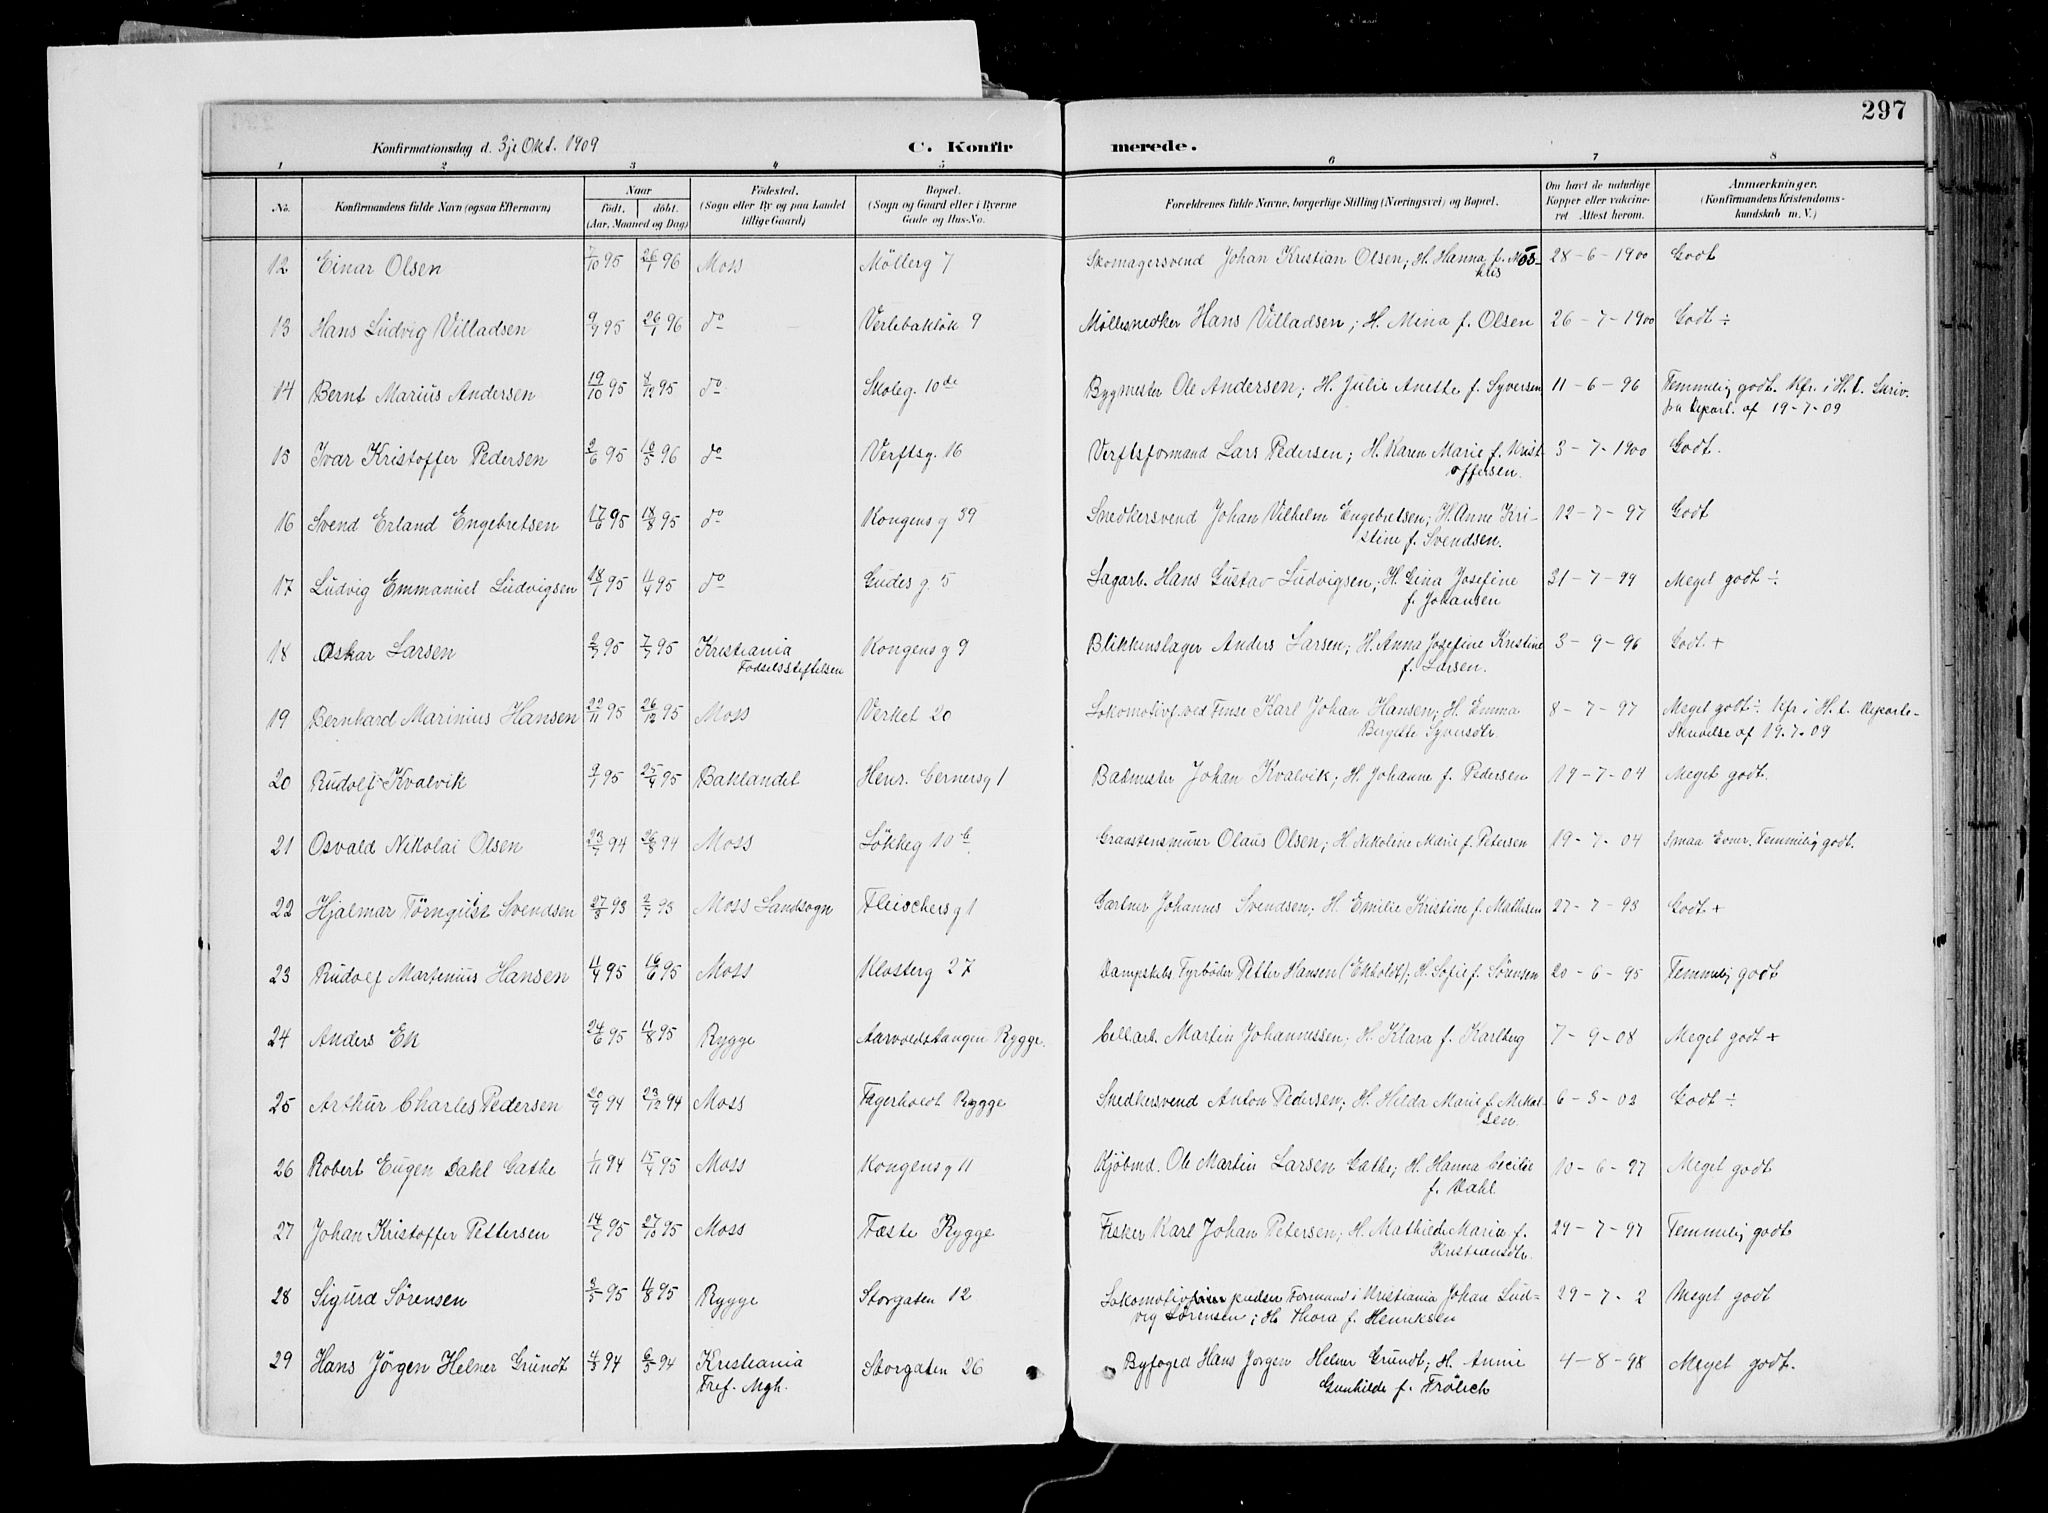 297
Konfirmationsdag d. 3je Okt. 1909 C. Konfirmerede.
1 2 3 4 5 6 7 8
No. Konfirmandens fulde Navn (ogsaa Efternavn) Naar født, døbt. (Aar, Maaned og Dag) Fødested. (Sogn eller By og paa Landet tillige Gaard) Bopæl. (Sogn og Gaard eller i Byerne Gade og Hus-No. Forældrenes fulde Navne, borgerlige Stilling (Næringsvei) og Bopæl. Om havt de naturlige Kopper eller vaccineret Attest herom. Anmærkninger. (Konfirmandens Kristendomskundskab m. V.)
12 Einar Olsen 7/10 95 26/1 96 Moss Möllerg 7 Skomagersvend Johan Kristian Olsen; H. Hanna f. 28-6-1900 Godt
13 Hans Ludvig Villadsen 9/9 95 26/1 96 do Verlebakløk 9 Møllesnedker Hans Villadsen; H. Mina f. Olsen 26-7-1900 Godt ÷
14 Bernt Marius Andersen 19/10 95 8/12 95 do Skoleg. 10 de Bygmester Ole Andersen; H. Julie Anette f. Syversen 11-6-96 Temmelig godt. Kfr. i H. t. Skriv.
fra Depart. af 19-7-09
15 Ivar Kristoffer Pedersen 2/6 95 10/5 96 do Verftsg. 16 Verftsformand Lars Pedersen; H. Karen Marie f. Krist
offersen. 3-7-1900 Godt.
16 Svend Erland Engebretsen 17/6 95 18/8 95 do Kongens g 39 Snedkersvend Johan Vilhelm Engebretsen; H. Anne Kri-
stine f. Svendsen. 12-7-97 Godt
17 Ludvig Emmanuel Ludvigsen 18/1 95 11/4 95 do Gudes g. 5 Sagarb. Hans Gustav Ludvigsen; H. Gina Josefine
f. Johansen 31-7-99 Meget godt ÷
18 Oskar Larsen 2/7 95 7/7 95 Kristiania
Fødselsstiftelsen Kongens g 9 Blikkenslager Anders Larsen; H. Anna Josefine Kristine
f. Larsen. 3-9-96 Godt +
19 Bernhard Marinius Hansen 22/11 95 26/12 95 Moss Verket 20 Lokomotivf. ved Finse Karl Johan Hansen; H. Emma
Bergette Syversdtr. 8-7-97 Meget godt ÷ Kfr i H. t. Departe-
Skrivelse af 19.7.09
20 Rudolf Kvalvik 9/1 95 25/4 95 Baklandet Henr. Gernersg 1 Badmester Johan Kvalvik; H. Johanne f. Pedersen 19-7-04 Meget godt.
21 Osvald Nikolai Olsen 23/7 94 26/8 94 Moss Løkkeg 10 b Graastensmurer Olaus Olsen; H. Nikoline Marie f. Petersen 19-7-04 Smaa Evner. Temmelig godt.
22 Hjalmar Törnqvist Svendsen 27/3 93 2/7 93 Moss Landsogn Fleischers g 1 Gartner Johannes Svendsen; H. Emilie Kristine f. Mathisen 27-7-98 Godt +
23 Rudolf Martenius Hansen 11/4 95 16/6 95 Moss Klosterg 27 Dampskibs Fyrbøder Petter Hansen (Ekholdt); H. Sofie f. Sørensen 20-6-95 Temmelig godt
24 Anders Ek 24/6 95 11/8 95 Rygge Aarvoldstangen Rygge. Cellarb. Martin Johannessen; H. Klara f. Karlberg 7-9-08 Meget godt +
25 Arthur Charles Pedersen 20/9 94 23/12 94 Moss Fagerholdt Rygge Snedkersvend Anton Pedersen; H. Hilda Marie f. Mikal-
sen. 6-3-02 Godt ÷
26 Robert Eugen Dahl Gathe 1/11 94 15/4 95 Moss Kongens g 11 Kjøbmd. Ole Martin Larsen Gathe; H. Hanna Cecilie
f. Dahl. 10-6-97 Meget godt
27 Johan Kristoffer Pettersen 14/7 95 27/10 95 Moss Fæste Rygge Fisker Karl Johan Petersen; H. Mathilde Maria f.
Kristiansdtr. 29-7-97 Temmelig godt
28 Sigurd Sørensen 3/5 95 11/8 95 Rygge Storgaten 12 pudser Formand i Kristiania Johan Lud-
vig Sørensen; H. Thora f. Henriksen 29-7-2 Meget godt
29 Hans Jörgen Helner Grundt 4/3 94 6/5 94 Kristiania
Tref. Mgh. Storgaten 26 Byfoged Hans Jørgen Helner Grundt; H. Annie
Gunhilde f. Frölich 4-8-98 Meget godt.